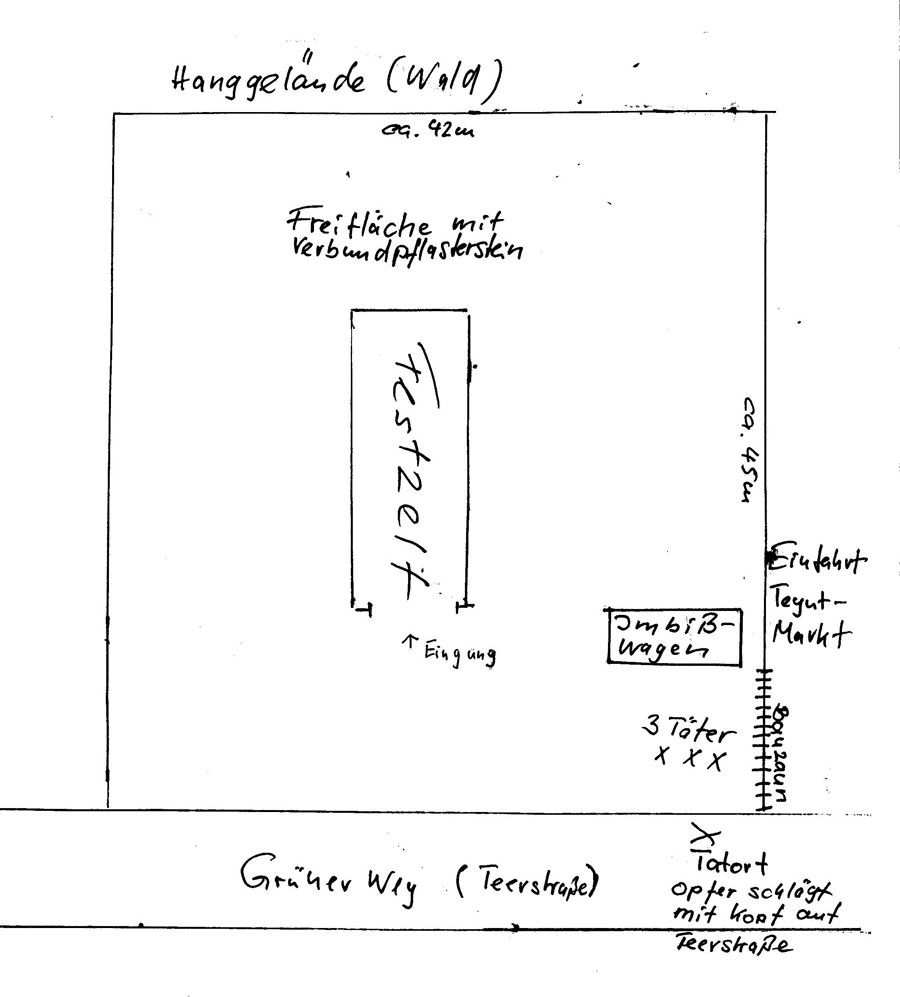 Hanggelände (Wald)
ca. 42m
Freifläche mit
Verbundpflasterstein
Festzelt
ca. 45m
Einfahrt
Tegut-
Markt
Imbiß-
wagen
↑ Eingang
3 Täter
X X X
Bauzaun
X
Tatort
Opfer schlägt
mit Kopf auf
Teerstraße
Grüner Weg (Teerstraße)